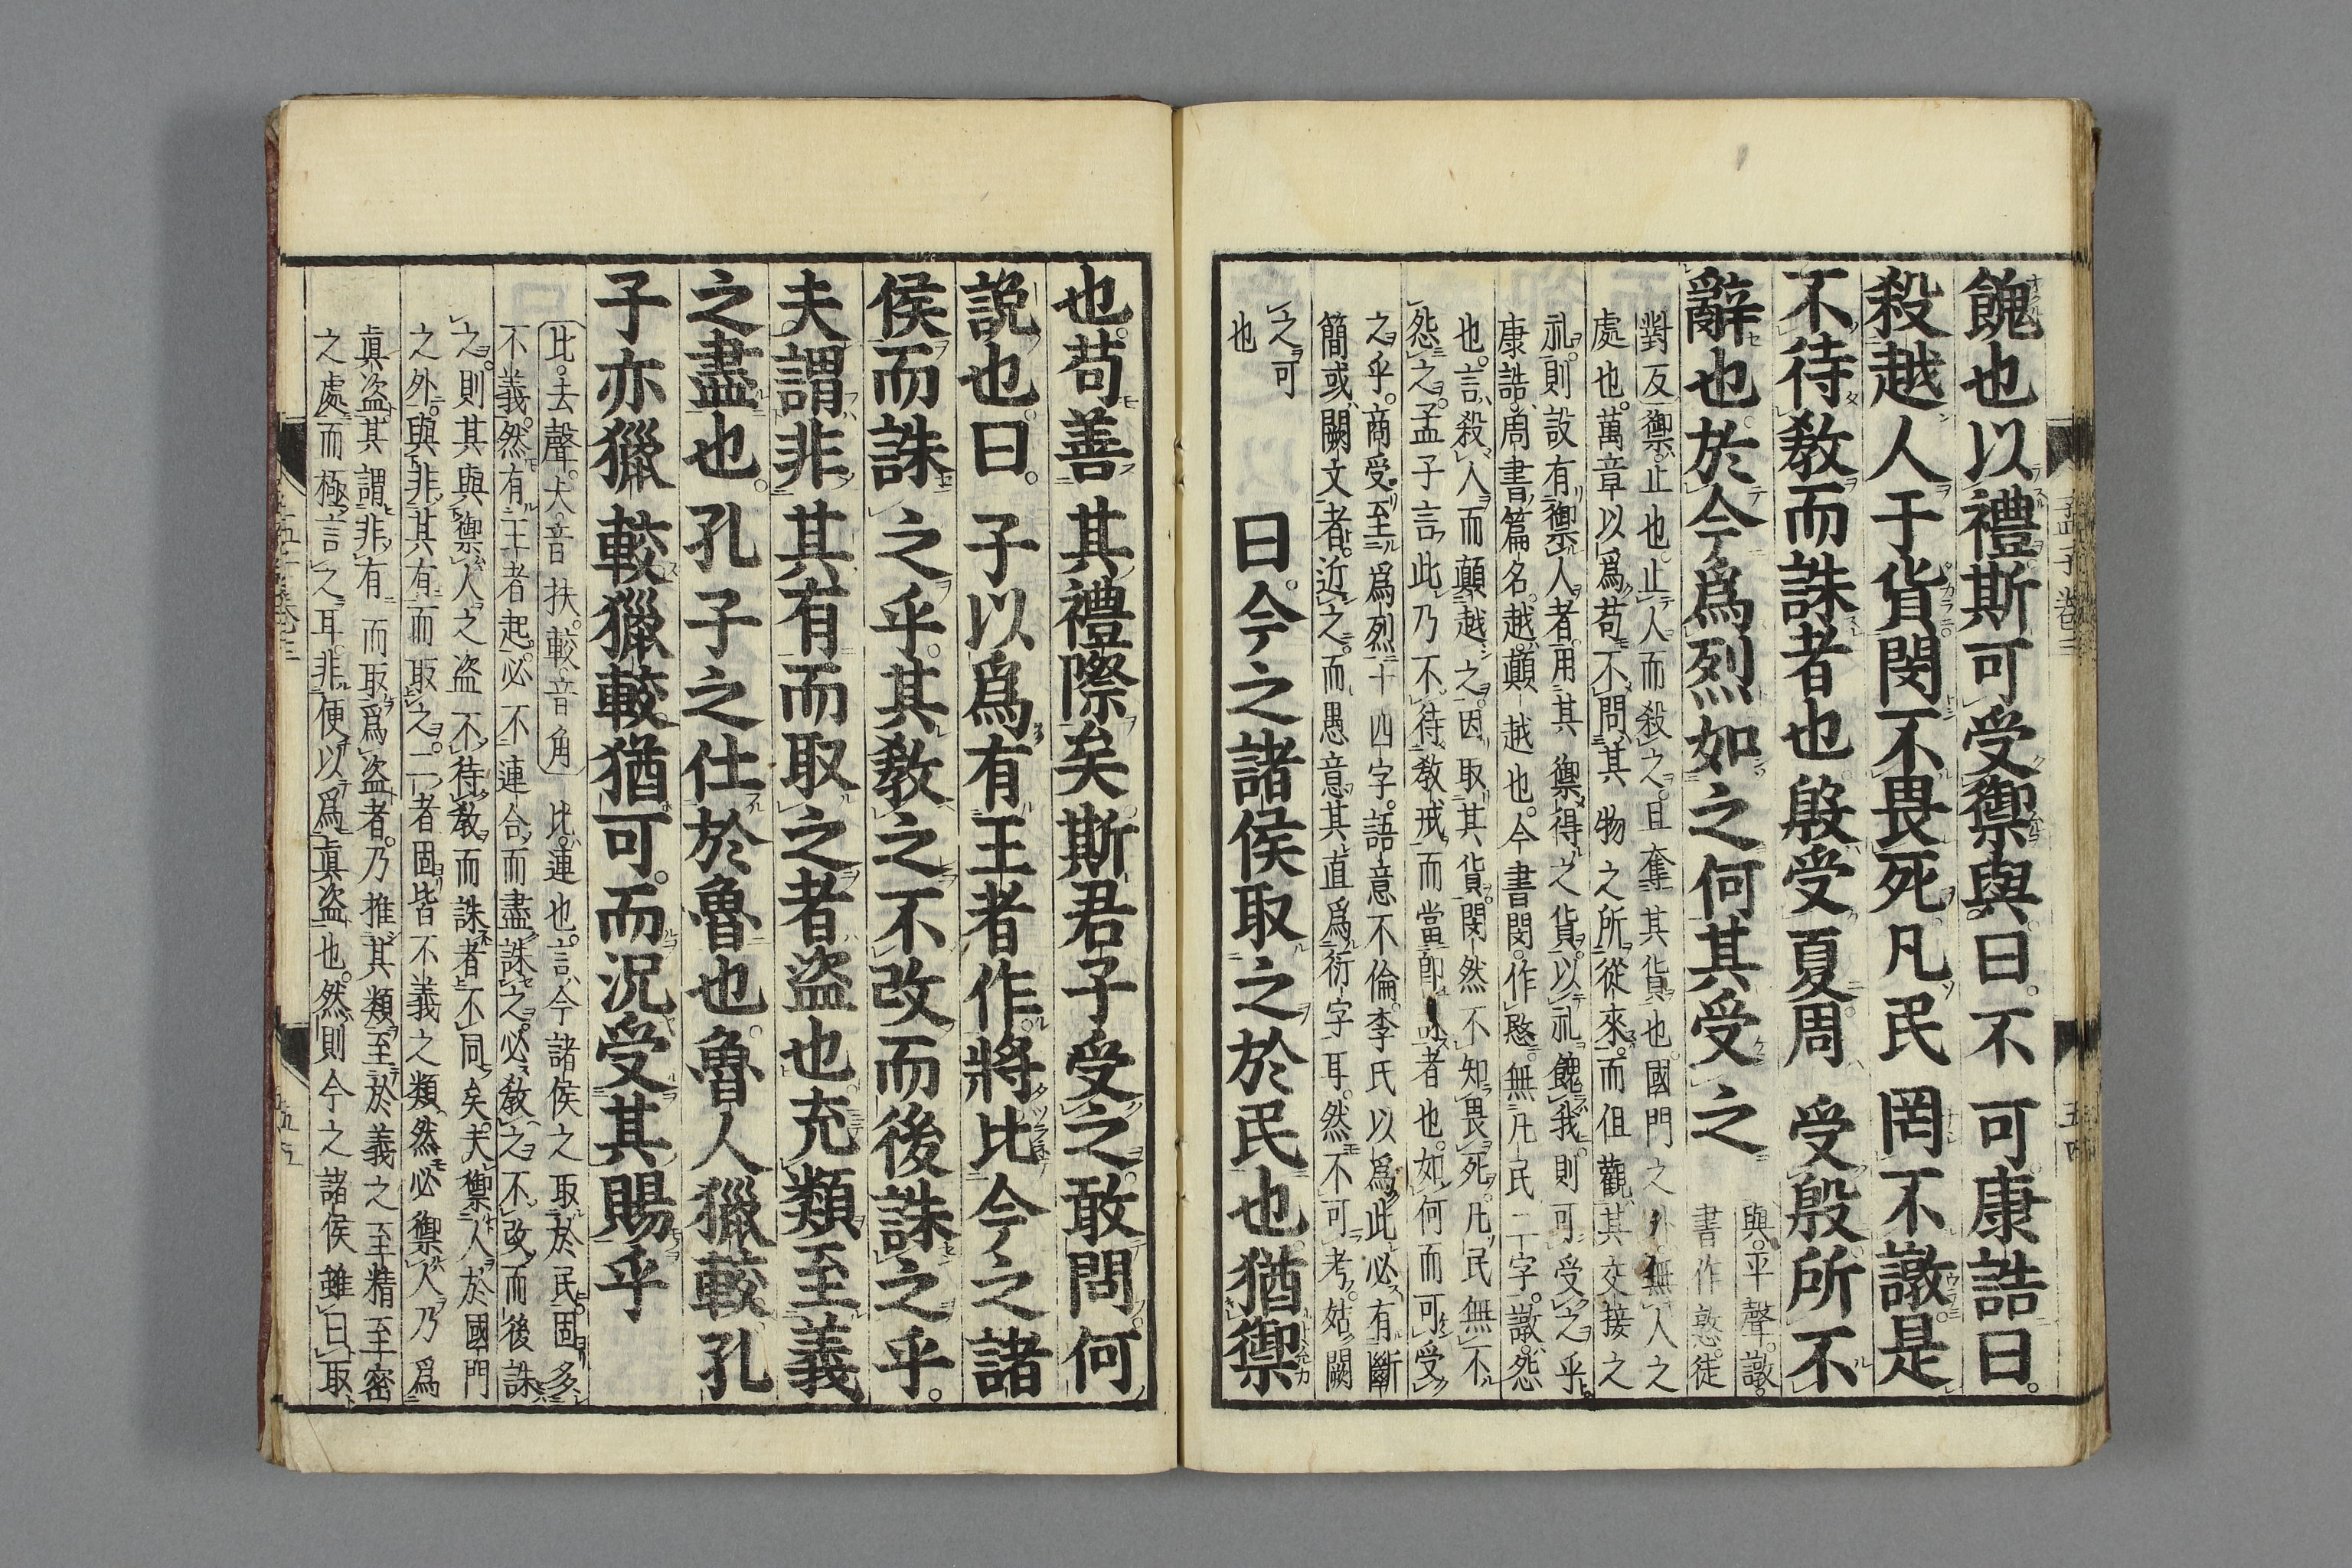 餽也以禮斯可受禦與曰不可康誥曰
殺越人于貨閔不畏死凡民罔不譈是
不待敎而誅者也殷受夏周受殷所不
辭也於今爲烈如之何其受之
與平聲譈
書作憝徒
對反禦止也止人而殺之且奪其貨也國門之外無人之
處也萬章以爲苟不問其物之所從來而但觀其交接之
禮則設有禦人者用其禦得之貨以禮餽我則可受之乎
康誥周書篇名越顚越也今書閔作愍無凡民二字譈怨
也言殺人而顚越之因取其貨閔然不知畏死凡民無不
怨之孟子言此乃不待敎戒而當卽誅者也如何而可受
之乎商受至爲烈十四字語意不倫李氏以爲此必有斷
簡或闕文者近之而愚意其直爲衍字耳然不可考姑闕
之可
也
曰今之諸侯取之於民也猶禦
也苟善其禮際矣斯君子受之敢問何
說也曰子以爲有王者作將比今之諸
侯而誅之乎其敎之不改而後誅之乎
夫謂非其有而取之者盜也充類至義
之盡也孔子之仕於魯也魯人獵較孔
子亦獵較獵較猶可而況受其賜乎
比去聲夫音扶較音角 比連也言今諸侯之取於民固多
不義然有王者起必不連合而盡誅之必敎之不改而後誅
之則其與禦人之盜不待敎而誅者不同矣夫禦人於國門
之外與非其有而取之二者固皆不義之類然必禦人乃爲
眞盜其謂非有而取爲盜者乃推其類至於義之至精至密
之處而極言之耳非便以爲眞盜也然則今之諸侯雖曰取
孟子卷三
五四